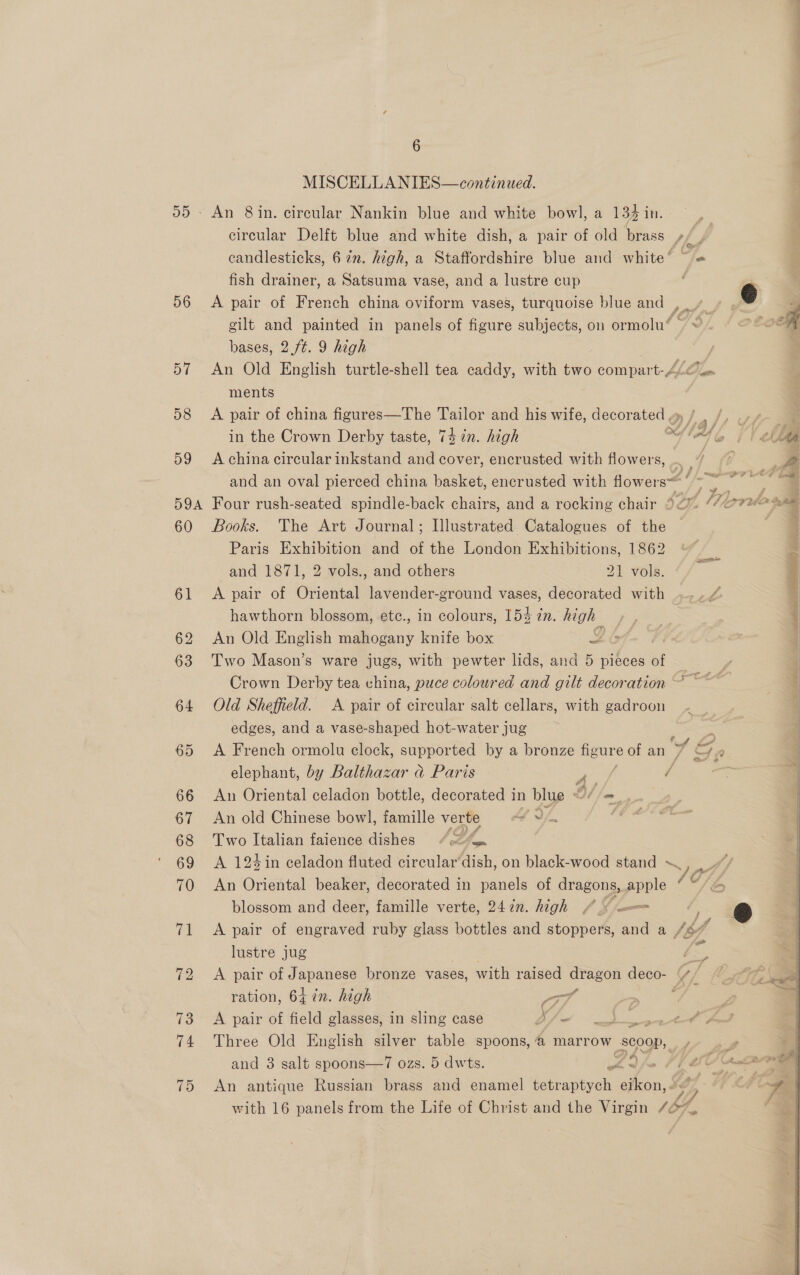 6
MISCELLANIES—continued.
55 - An 8 in. circular Nankin blue and white bowl, a 13½ in.
circular Delft blue and white dish, a pair of old brass
candlesticks, 6 in. high, a Staffordshire blue and white
fish drainer, a Satsuma vase, and a lustre cup
56 A pair of French china oviform vases, turquoise blue and
gilt and painted in panels of figure subjects, on ormolu
bases, 2 ft. 9 high
57 An Old English turtle-shell tea caddy, with two compart-
ments
58 A pair of china figures—The Tailor and his wife, decorated
in the Crown Derby taste, 7½ in. high
59 A china circular inkstand and cover, encrusted with flowers,
and an oval pierced china basket, encrusted with flowers
59A Four rush-seated spindle-back chairs, and a rocking chair
60 Books. The Art Journal; Illustrated Catalogues of the
Paris Exhibition and of the London Exhibitions, 1862
and 1871, 2 vols., and others 21 vols.
61 A pair of Oriental lavender-ground vases, decorated with
hawthorn blossom, etc., in colours, 15½ in. high
62 An Old English mahogany knife box
63 Two Mason's ware jugs, with pewter lids, and 5 pieces of
Crown Derby tea china, puce coloured and gilt decoration
64 Old Sheffield. A pair of circular salt cellars, with gadroon
edges, and a vase-shaped hot-water jug
65 A French ormolu clock, supported by a bronze figure of an
elephant, by Balthazar à Paris
66 An Oriental celadon bottle, decorated in blue
67 An old Chinese bowl, famille verte
68 Two Italian faience dishes
69 A 12½ in celadon fluted circular dish, on black-wood stand
70 An Oriental beaker, decorated in panels of dragons, apple
blossom and deer, famille verte, 24 in. high
71 A pair of engraved ruby glass bottles and stoppers, and a
lustre jug
72 A pair of Japanese bronze vases, with raised dragon deco-
ration, 6¼ in. high
73 A pair of field glasses, in sling case
74 Three Old English silver table spoons, a marrow scoop,
and 3 salt spoons—7 ozs. 5 dwts.
75 An antique Russian brass and enamel tetraptych eikon,
with 16 panels from the Life of Christ and the Virgin